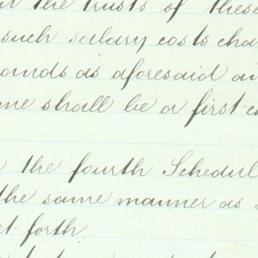 the trusts of these
such salary costs cha
ounds as aforesaid an
me shall be a first c
the fourth Schedul
the same manner as
et forth.